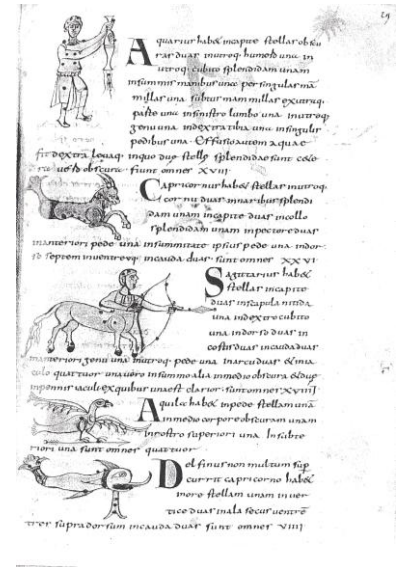 29
Aquarius habet incapite stellas obscu
ras duas inutroq· humero una in
utroq· cubito splendidam unam
insummis manibus una per singulas ma
millas una subtus mammillas exutraq·
parte una insinistro lumbo una inutroq·
genu una indextra tibia una insingulis
pedibus una Effusio autem aquae
fit dextra levaq· inquo duo stellę splendidae sunt cete
rae obscurae fiunt omnes XVIII
Capricornus habet stellas inutroq·
cornu duas innaribus splendi
dam unam incapite duas incollo
splendidam unam inpectore duas
inanteriori pede una insummitate ipsius pede una indor
so septem inventre incauda duas sunt omnes XXVI
Sagittarius habet
stellas incapite
duas inscapula nitida
una indextro cubito
una indorso duas in
costis duas incauda duas
inanteriori genu una inutroq· pede una inarcu duas
quattuor una vero insummo alia inmedio obscura
inpennis iaculi exquibus una est clarior sunt omnes
Aquila habet inpede stellam unā
inmedio corpore obscuram unam
inrostro superiori una Insubte
riori una sunt omnes quattuor
Delfinus non multum sup
currit capricorno habet
inore stellam unam inver
tice duas inala secus ventrē
tres supra dorsum incauda duas sunt omnes VIIII